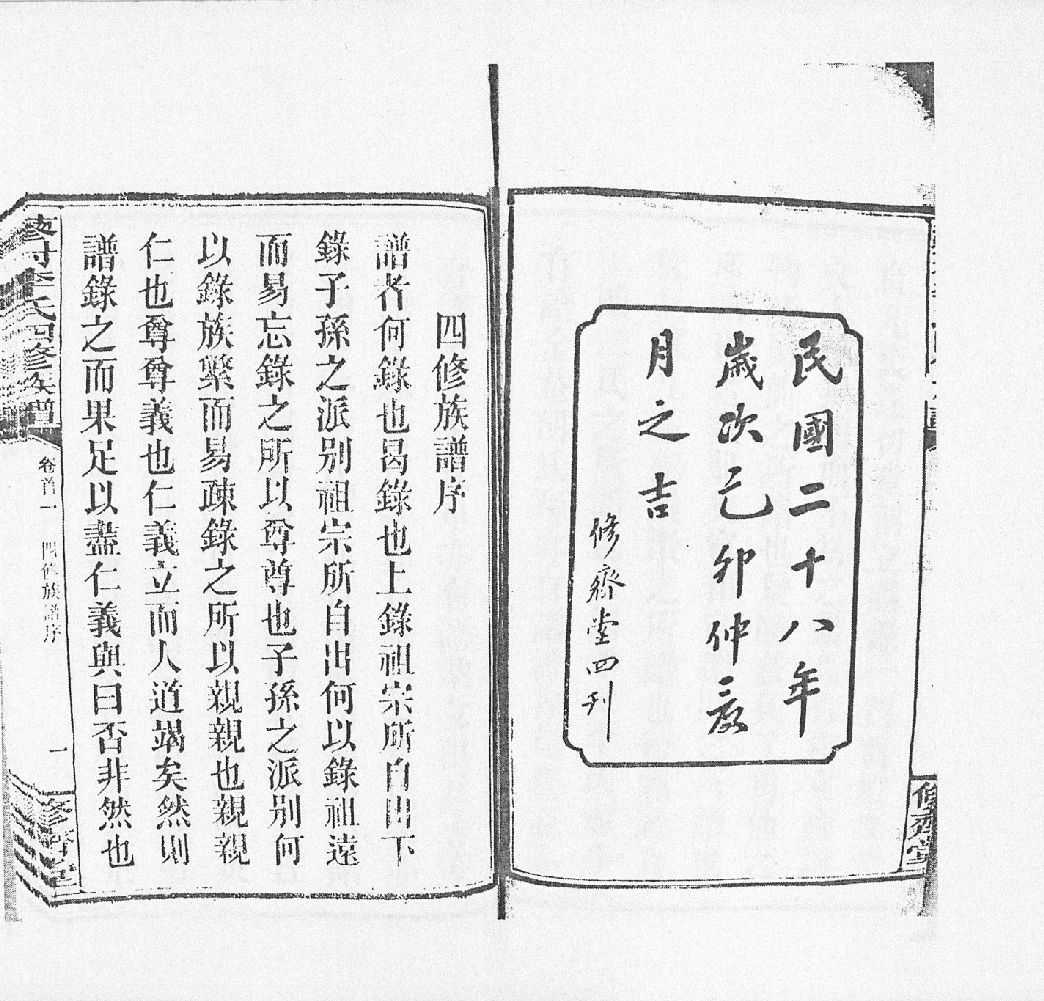 民國二十八年
歲次己卯仲夏
月之吉
修齊堂四刊
修齊堂
四修族譜序
譜者何錄也曷錄也上錄祖宗所自出下
錄子孫之派別祖宗所自出何以錄祖遠
而易忘錄之所以尊尊也子孫之派別何
以錄族繁而易疎錄之所以親親也親親
仁也尊尊義也仁義立而人道竭矣然則
譜錄之而果足以盡仁義與曰否非然也
李氏四修族譜
卷首一
四修族譜序
一
修齊堂